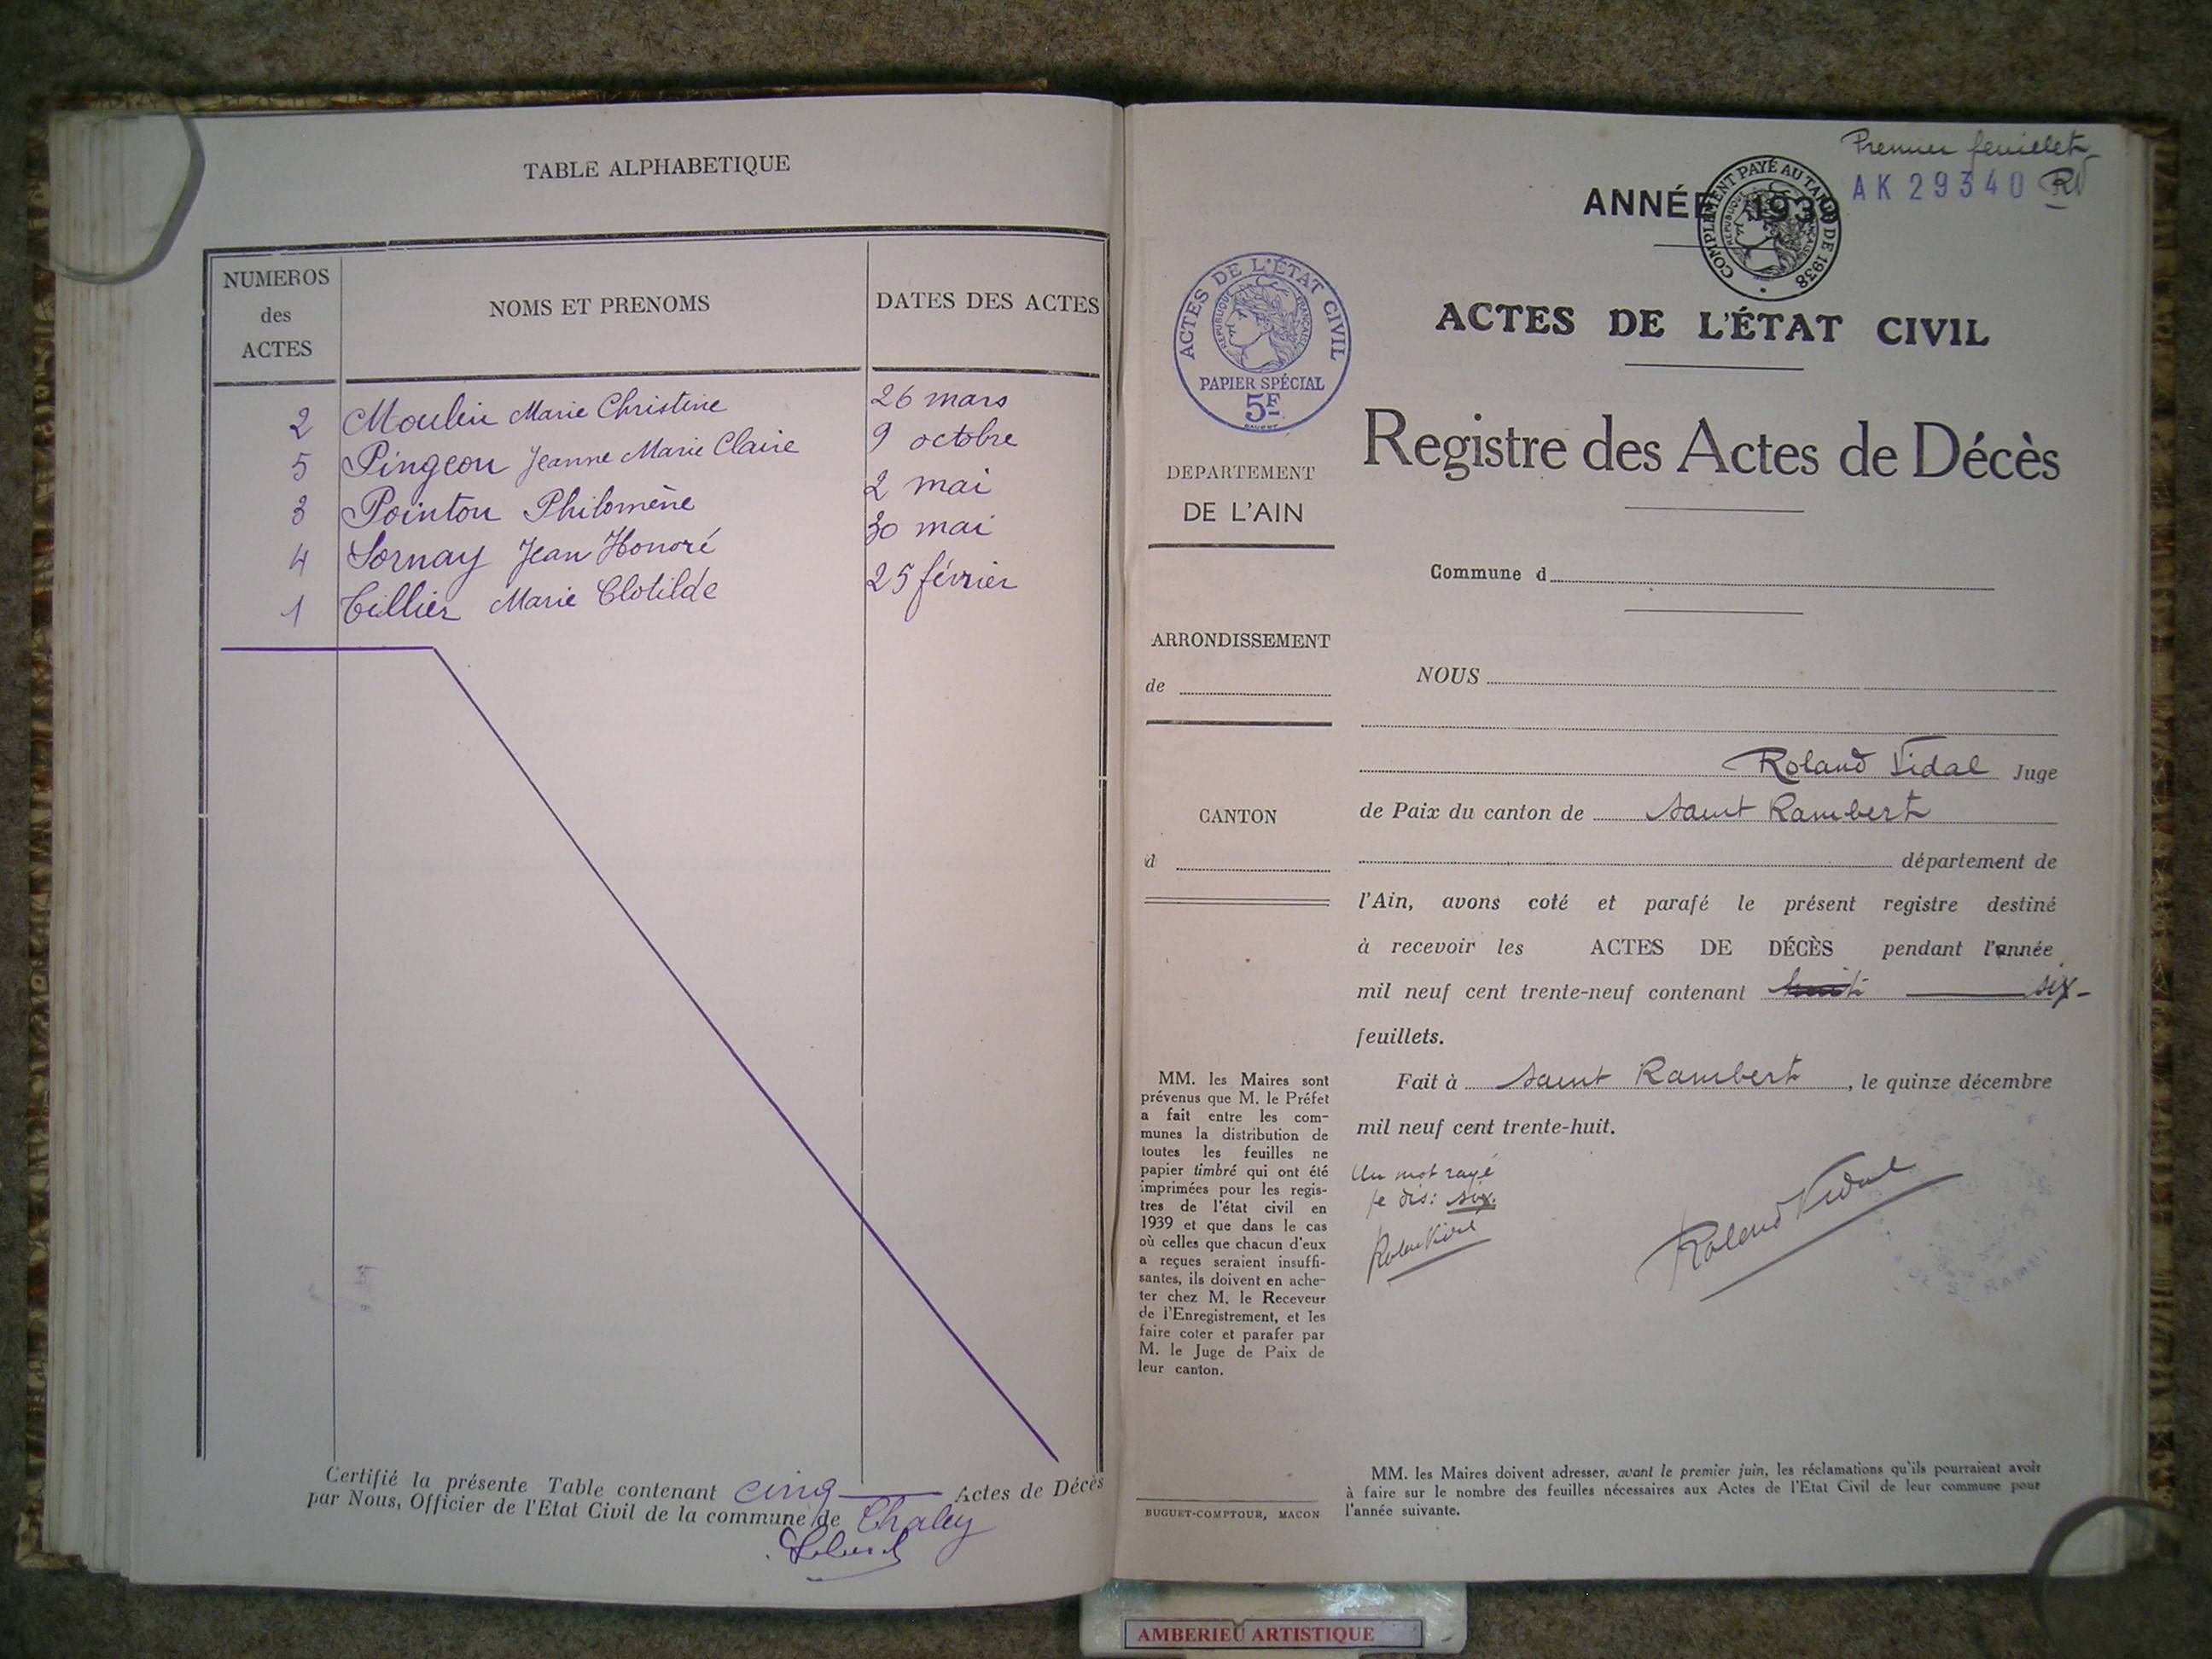 TABLE ALPHABETIQUE
NUMEROS
des
ACTES
NOMS ET PRENOMS
DATES DES ACTES
2 Moulin Marie Christine 26 mars
5 Pingeon Jeanne Marie Claire 9 octobre
3 Pointon Philomène 2 mai
4 Sornay Jean Honoré 30 mai
1 Tillier Marie Clotilde 25 février
Certifié la présente Table contenant cinq Actes de Décès
par Nous, Officier de l'Etat Civil de la commune de Chaley
Premier feuillet
AK 29340 RV
ANNÉE 1939
COMPLEMENT PAYÉ AU TARIF DE 1938
ACTES DE L'ÉTAT CIVIL
RÉPUBLIQUE FRANÇAISE
PAPIER SPÉCIAL
5F
DEPARTEMENT
DE L'AIN
ARRONDISSEMENT
de
CANTON
d
MM. les Maires sont
prévenus que M. le Préfet
a fait entre les com-
munes la distribution de
toutes les feuilles ne
papier timbré qui ont été
imprimées pour les regis-
tres de l'état civil en
1939 et que dans le cas
où celles que chacun d'eux
a reçues seraient insuffi-
santes, ils doivent en ache-
ter chez M. le Receveur
de l'Enregistrement, et les
faire coter et parafer par
M. le Juge de Paix de
leur canton.
BUGUET-COMPTOUR, MACON
ACTES DE L'ÉTAT CIVIL
Registre des Actes de Décès
Commune d
NOUS
Roland Vidal Juge
de Paix du canton de Saint Rambert
département de
l'Ain, avons coté et parafé le présent registre destiné
à recevoir les ACTES DE DÉCÈS pendant l'année
mil neuf cent trente-neuf contenant huit six
feuillets.
Fait à Saint Rambert, le quinze décembre
mil neuf cent trente-huit.
Un mot rayé
je dis: six.
Roland Vidal
Roland Vidal
MM. les Maires doivent adresser, avant le premier juin, les réclamations qu'ils pourraient avoir
à faire sur le nombre des feuilles nécessaires aux Actes de l'Etat Civil de leur commune pour
l'année suivante.
AMBERIEU ARTISTIQUE